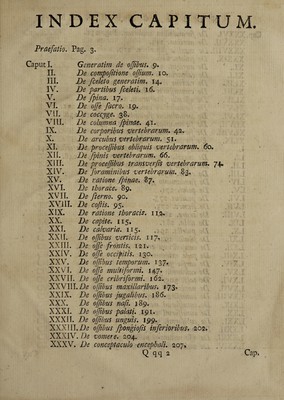 INDEX CAPITUM.
Praefatio. Pag. 3.
Caput I. Generatim de ossibus. 9.
II. De compositione ossium. 10.
III. De sceleto generatim. 14.
IV. De partibus sceleti. 16.
V. De spina. 17.
VI. De osse sacro. 19.
VII. De coccyge. 38.
VIII. De columna spinae. 41.
IX. De corporibus vertebrarum. 42.
X. De arcubus vertebrarum. 51.
XI. De processibus obliquis vertebrarum. 60.
XII. De spinis vertebrarum. 66.
XIII. De processibus transversis vertebrarum. 74.
XIV. De foraminibus vertebrarum. 83.
XV. De ratione spinae. 87.
XVI. De thorace. 89.
XVII. De sterno. 90.
XVIII. De costis. 95.
XIX. De ratione thoracis. 112.
XX. De capite. 115.
XXI. De calvaria. 115.
XXII. De ossibus verticis. 117.
XXIII. De osse frontis. 121.
XXIV. De osse occipitis. 130.
XXV. De ossibus temporum. 137.
XXVI. De osse multiformi. 147.
XXVII. De osse cribriformi. 162.
XXVIII. De ossibus maxillaribus. 173.
XXIX. De ossibus jugalibus. 186.
XXX. De ossibus nasi. 189.
XXXI. De ossibus palati. 191.
XXXII. De ossibus unguis. 199.
XXXIII. De ossibus spongiosis inferioribus. 202.
XXXIV. De vomere. 204.
XXXV. De conceptaculo encephali. 207.
Q qq 2 Cap.